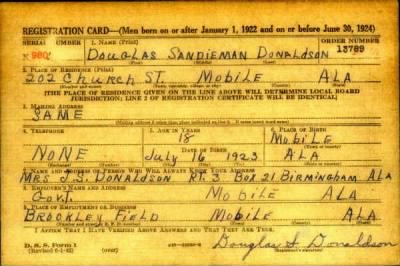 REGISTRATION CARD—(Men born on or after January 1, 1922 and on or before June 30, 1924)
SERIAL NUMBER 1. NAME (Print) ORDER NUMBER
DOUGLAS SANDIEMAN DONALDSON 13789
2. PLACE OF RESIDENCE (Print)
202 CHURCH ST. MOBILE ALA
(THE PLACE OF RESIDENCE GIVEN ON THE LINE ABOVE WILL DETERMINE LOCAL BOARD
JURISDICTION; LINE 2 OF REGISTRATION CERTIFICATE WILL BE IDENTICAL)
3. MAILING ADDRESS
SAME
4. TELEPHONE 5. AGE IN YEARS 6. PLACE OF BIRTH
18 MOBILE
NONE July 16 1923 ALA
7. NAME AND ADDRESS OF PERSON WHO WILL ALWAYS KNOW YOUR ADDRESS
MRS J.S. DONALDSON RT. 3 BOX 21 BIRMINGHAM ALA
8. EMPLOYER'S NAME AND ADDRESS
GOVT. MOBILE ALA
9. PLACE OF EMPLOYMENT OR BUSINESS
BROOKLEY FIELD MOBILE ALA
I AFFIRM THAT I HAVE VERIFIED ABOVE ANSWERS AND THAT THEY ARE TRUE.
D. S. S. Form 1
(Revised 6-1-42) Douglas S. Donaldson